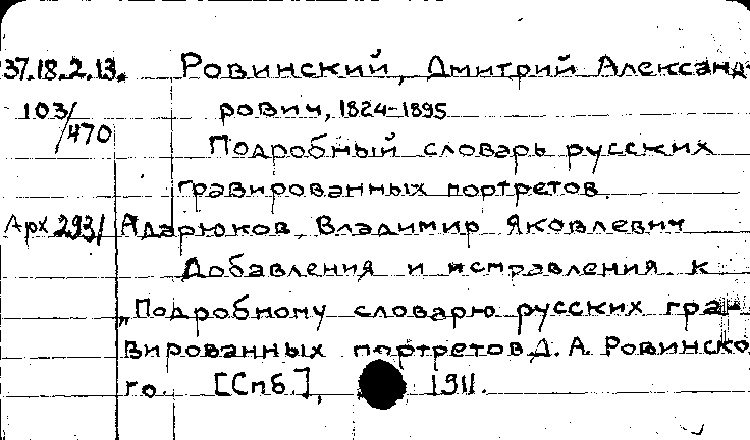 37.18.2.13. Ровинский, Дмитрий Александ-
103/470 рович, 1824-1895
Подробный словарь русских
гравированных портретов.
Арх 293/ Адарюков, Владимир Яковлевич
Добавления и исправления к
„Подробному словарю русских гра-
вированных портретов Д. А. Ровинско
го. [Спб.], 1911.